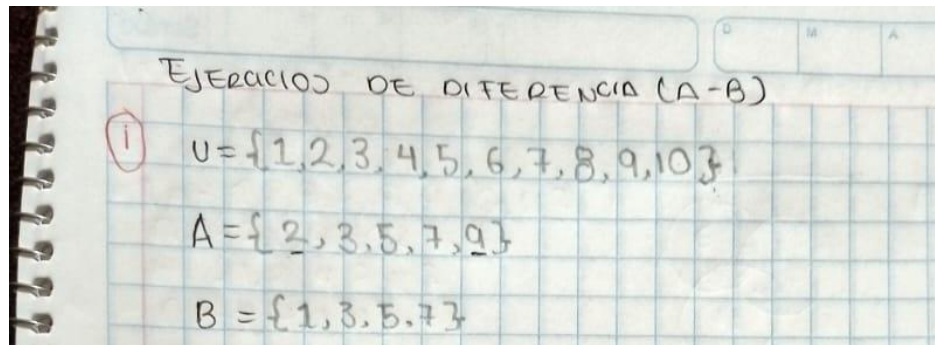 D M A
EJERCICIOS DE DIFERENCIA (A-B)
1 U={1,2,3,4,5,6,7,8,9,10}
A={2,3,5,7,9}
B={1,3,5,7}